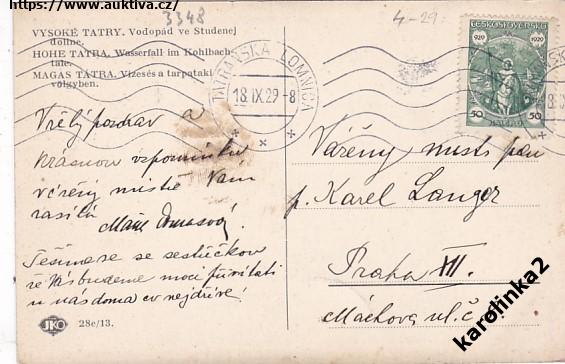 https://www.auktiva.cz/
3348
4-29
VYSOKÉ TATRY. Vodopád ve Studenej
doline.
HOHE TATRA. Wasserfall im Kohlbach-
tale.
MAGAS TÁTRA. Vizesés a tarpataki
völgyben.
TATRANSKÁ LOMNICA
18.IX.29-8
ČESKOSLOVENSKO
929 1929
50 50
Vřelý pozdrav a
krásnou vzpomínku
vážený mistře Vám
zasílá
Těšíme se sestičkou
že Vás budeme moci přivítati
u nás doma co nejdříve!
Vážený mistr pan
p. Karel Langer
Praha VII.
Máchova ul. č.
JKO
28e/13.
karolinka2